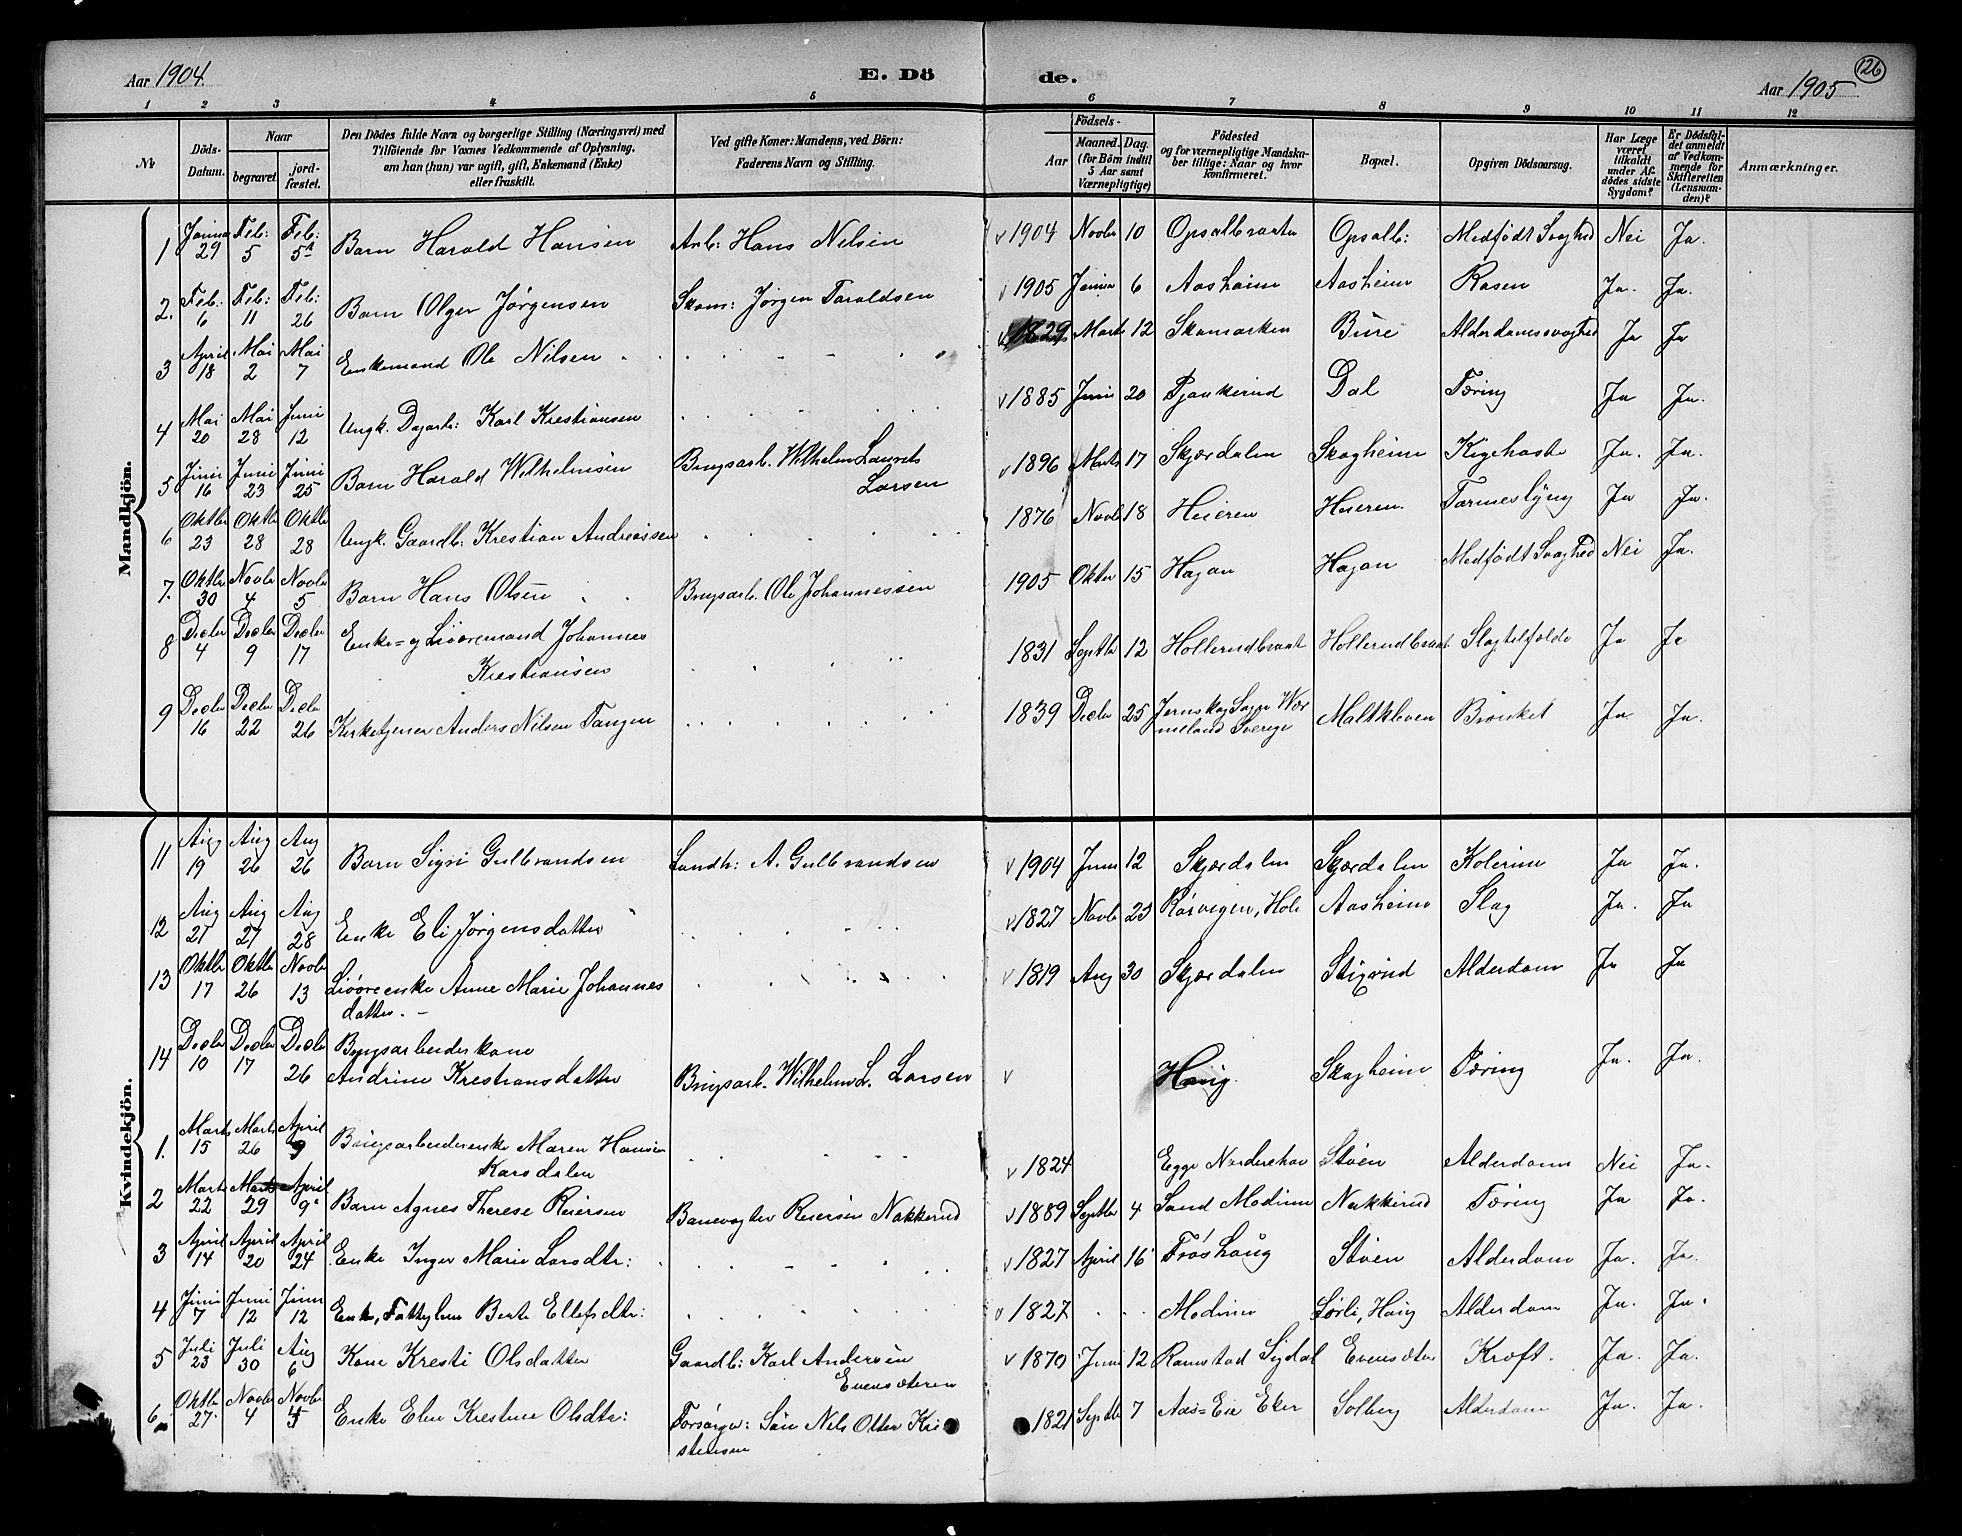 Aar 1904.
E. Dö
de.
Aar 1905
126
1 2 3 4 5 6 7 8 9 10 11 12
№
Döds-
Datum.
Naar
begravet.
jord-
fæstet.
Den Dödes fulde Navn og borgerlige Stilling (Næringsvei) med
Tilföiende for Voxnes Vedkommende af Oplysning,
om han (hun) var ugift, gift, Enkemand (Enke)
eller fraskilt.
Ved gifte Koner: Mandens, ved Börn:
Faderens Navn og Stilling.
Födsels-
Aar
Maaned. Dag.
(for Börn indtil
5 Aar samt
Værnepligtige)
Födested
og for værnepligtige Mandska-
ber tillige: Naar og hvor
konfirmeret.
Bopæl.
Opgiven Dödsaarsag.
Har Læge
været
tilkaldt
under Af-
dödes sidste
Sygdom?
Er Dödsfal-
det anmeldt
af Vedkom-
mende for
Skifteretten
(Lensman-
den)?
Anmærkninger.
Mandkjön.
1 Janua 29 Feb: 5 Feb: 5 Barn Harald Hansen Arb: Hans Nilsen 1904 Novbr 10 Opsalbraaten Opsalb: Medfödt Svaghed Nei Ja.
2. Feb. 6 Feb: 11 Feb: 26 Barn Olger Jörgensen Skom: Jörgen Taraldsen 1905 Janua 6 Aasheim Aasheim Rosen Ja. Ja.
3 April 18 Mai 2 Mai 7 Enkemand Ole Nilsen 1829 Marts 12 Skamarken Bure Alderdomssvaghed Ja Ja
4 Mai 20 Mai 28 Juni 12 Ungk. Dagarb: Karl Kristiansen 1885 Juni 20 Pjaakerud Dal Tæring Ja Ja.
5 Juni 16 Juni 23 Juni 25 Barn Harald Wilhelmsen Brugsarb. Wilhelm Laurits
Larsen 1896 Marts 17 Skjærdalen Skogheim Kighoste Ja. Ja.
6 Oktbr 23 Oktbr 28 Oktbr 28 Ungk. Gaardb: Kristian Andreassen 1876 Novbr 18 Heieren Heieren. Tarmeslyng Ja Ja.
7. Oktbr 30 Novbr 4 Novbr 5 Barn Hans Olsen Brugsarb. Ole Johannessen 1905 Oktbr 15 Hagan Hagan Medfödt Svaghed Nei Ja.
8 Decbr 4 Decbr 9 Decbr 17 Enke= og Livöremand Johannes
Kristiansen 1831 Septbr 12 Hollerudbraat Hollerudbraat Slagtilfælde Ja Ja
9 Decbr 16 Decbr 22 Decbr 26 Kirketjener Anders Nilsen Tangen 1839 Decbr 25 Jernskog Sogn Wær
meland Sverige Maltkleven Brönket Ja Ja.
Kvindekjön.
11 Aug 19 Aug 26 Aug 26 Barn Sigri Gulbrandsen Landh: A. Gulbrandsen 1904 Juni 12 Skjærdalen Skjærdalen Kolerine Ja Ja.
12 Aug 21 Aug 27 Aug 28 Enke Eli Jörgensdatter 1827 Novbr 23 Rörvigen, Hole Aasheim Slag Ja. Ja
13 Oktbr 17 Oktbr 26 Novbr 13 Livöreenke Anne Marie Johannes
datter. 1819 Aug 30 Skjærdalen Stixrud Alderdom Ja Ja
14 Decbr 10 Decbr 17 Decbr 26 Brugsarbeiderkone
Andrine Kristiansdatter Brugsarb. Wilhelm L. Larsen Haug. Skogheim Tæring Ja. Ja.
1. Marts 15 Marts 26 April 9 Brugsarbeiderenke Maren Hansen
Karsdalen 1824 Egge Norderhov Stöen Alderdom Nei Ja.
2 Marts 22 Marts 29 April 9 Barn Agnes Therese Reiersen Banevogter Reiersen Nakkerud 1889 Septbr 4 Sand Modum Nakkerud Tæring Ja Ja.
3 April 14 April 20 April 24 Enke Inger Marie Larsdtr: 1827 April 16 Fröshaug Stöen Alderdom Ja. Ja.
4 Juni 7 Juni 12 Juni 12 Enke, Fattiglem Berte Ellefsdtr: 1827 Modum Sörli, Haug Alderdom Ja. Ja.
5 Juli 23 Juli 30 Aug 6 Kone Kresti Olsdatter Gaardb: Karl Andersen
Evensæteren 1870 Juni 12 Ramstad Sigdal Evensæter Kræft. Ja. Ja.
6 Oktbr 27. Novbr 4 Novbr 5 Enke Elen Kristine Olsdtr: Forsörger: Sön Nils Otter Kri
stensen 1821 Septbr 7 Aas=Eie Eker Solberg Alderdom Ja. Ja.